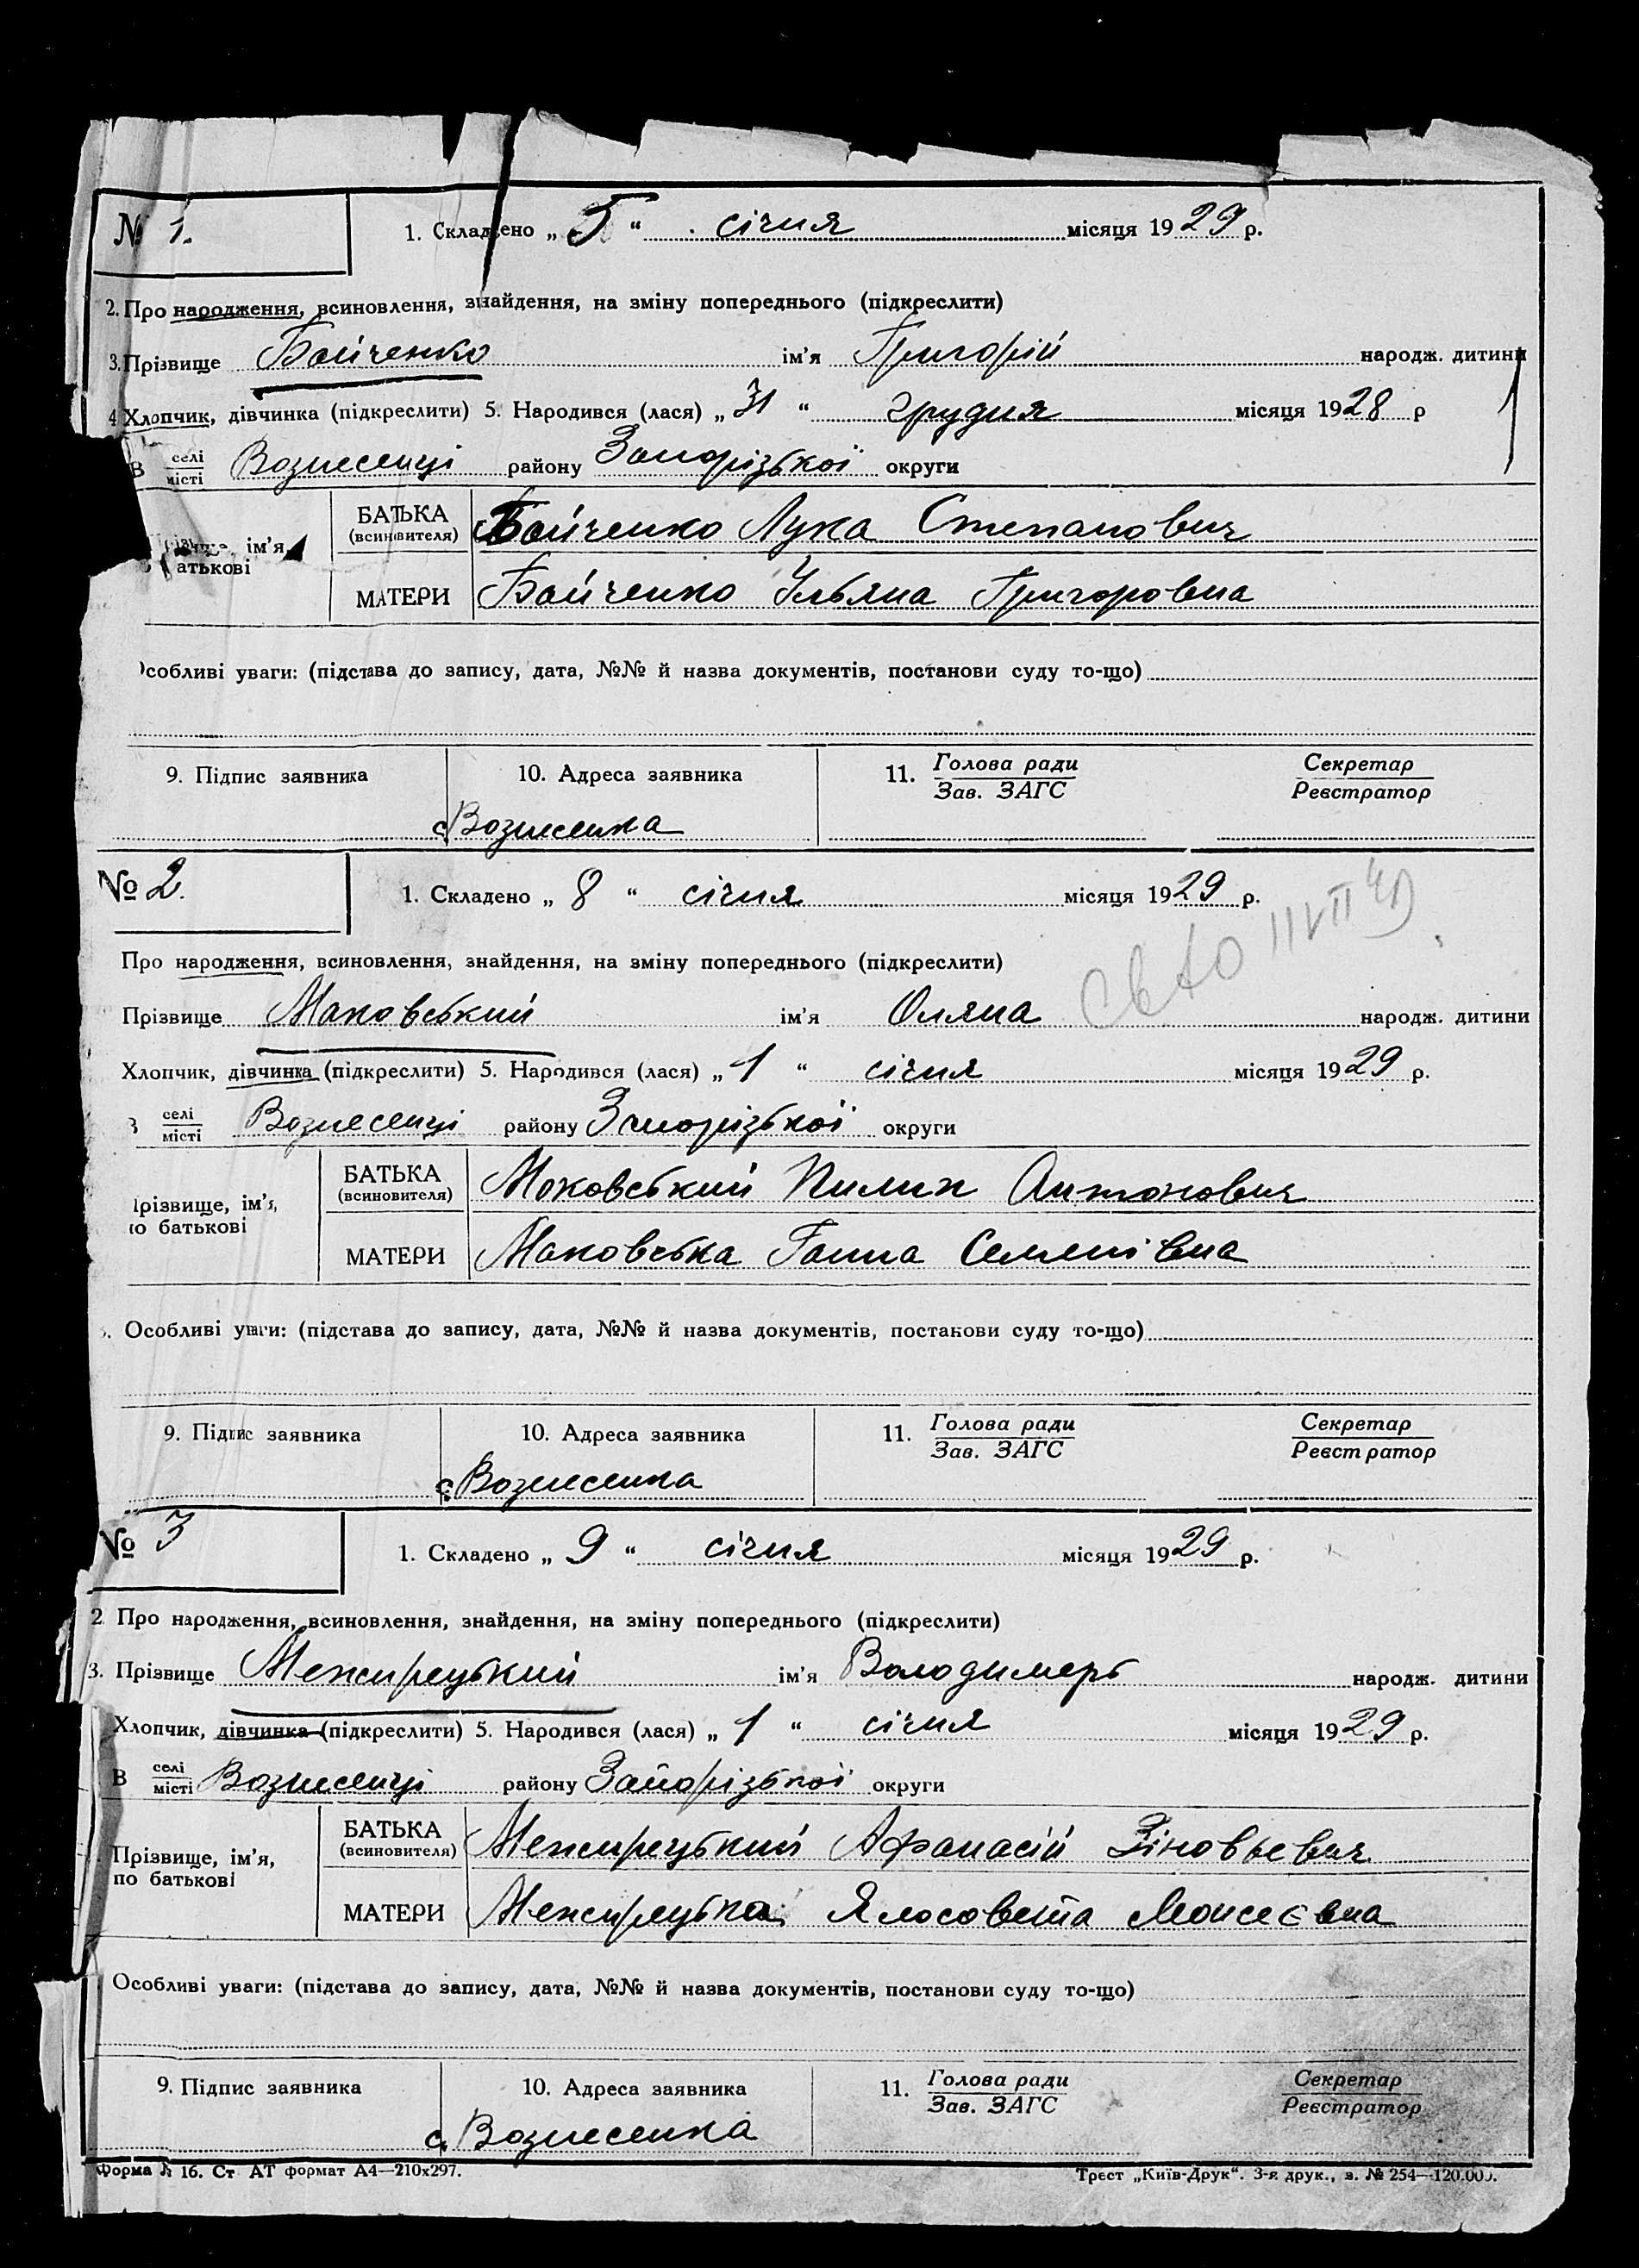 № 1. 1. Складено „ 5 “ січня місяця 1929 р.
2. Про народження, всиновлення, знайдення, на зміну попереднього (підкреслити)
3. Прізвище Бойченко ім'я Григорій народж. дитини
4 Хлопчик, дівчинка (підкреслити) 5. Народився (лася) „ 31 “ грудня місяця 1928 р
В селі/місті Вознесенці району Запорізької округи
БАТЬКА (всиновителя) Бойченко Лука Степанович
ім'я, батькові
МАТЕРИ Бойченко Ульяна Григоровна
Особливі уваги: (підстава до запису, дата, №№ й назва документів, постанови суду то-що)
9. Підпис заявника 10. Адреса заявника 11. Голова ради/Зав. ЗАГС Секретар/Реєстратор
с. Вознесенка
№ 2. 1. Складено „ 8 “ січня місяця 1929 р.
Про народження, всиновлення, знайдення, на зміну попереднього (підкреслити)
Прізвище Маковський ім'я Оляна народж. дитини
Хлопчик, дівчинка (підкреслити) 5. Народився (лася) „ 1 “ січня місяця 1929 р.
В селі/місті Вознесенці району Запорізької округи
БАТЬКА (всиновителя) Маковський Пилип Антонович
Прізвище, ім'я, по батькові
МАТЕРИ Маковська Ганна Семенівна
Особливі уваги: (підстава до запису, дата, №№ й назва документів, постанови суду то-що)
9. Підпис заявника 10. Адреса заявника 11. Голова ради/Зав. ЗАГС Секретар/Реєстратор
с. Вознесенка
№ 3 1. Складено „ 9 “ січня місяця 1929 р.
2. Про народження, всиновлення, знайдення, на зміну попереднього (підкреслити)
3. Прізвище Межирецький ім'я Володимерь народж. дитини
Хлопчик, дівчинка (підкреслити) 5. Народився (лася) „ 1 “ січня місяця 1929 р.
В селі/місті Вознесенці району Запорізької округи
БАТЬКА (всиновителя) Межирецький Афанасій Зіновьевич
Прізвище, ім'я, по батькові
МАТЕРИ Межирецька Ялосовета Моисеєвна
Особливі уваги: (підстава до запису, дата, №№ й назва документів, постанови суду то-що)
9. Підпис заявника 10. Адреса заявника 11. Голова ради/Зав. ЗАГС Секретар/Реєстратор
с. Вознесенка
Форма № 16. Ст. АТ формат А4—210х297. Трест „Київ-Друк“. 3-я друк., з. № 254—120.000.